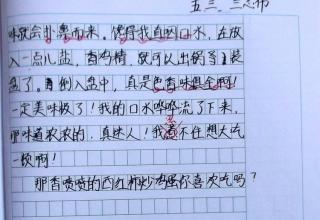 五三、三总命
味就会扑鼻而来。馋得我直咽口水,在放
入一点儿盐,香鸡精,就可以出锅了装
盘了。倒入盘中,真是色香味俱全啊!
一定美味极了!我的口水哗哗流了下来,
那味道农农的,真迷人!我忍不住想大吃
一顿啊!
那香喷喷的西红柿炒鸡蛋你喜欢吃吗?